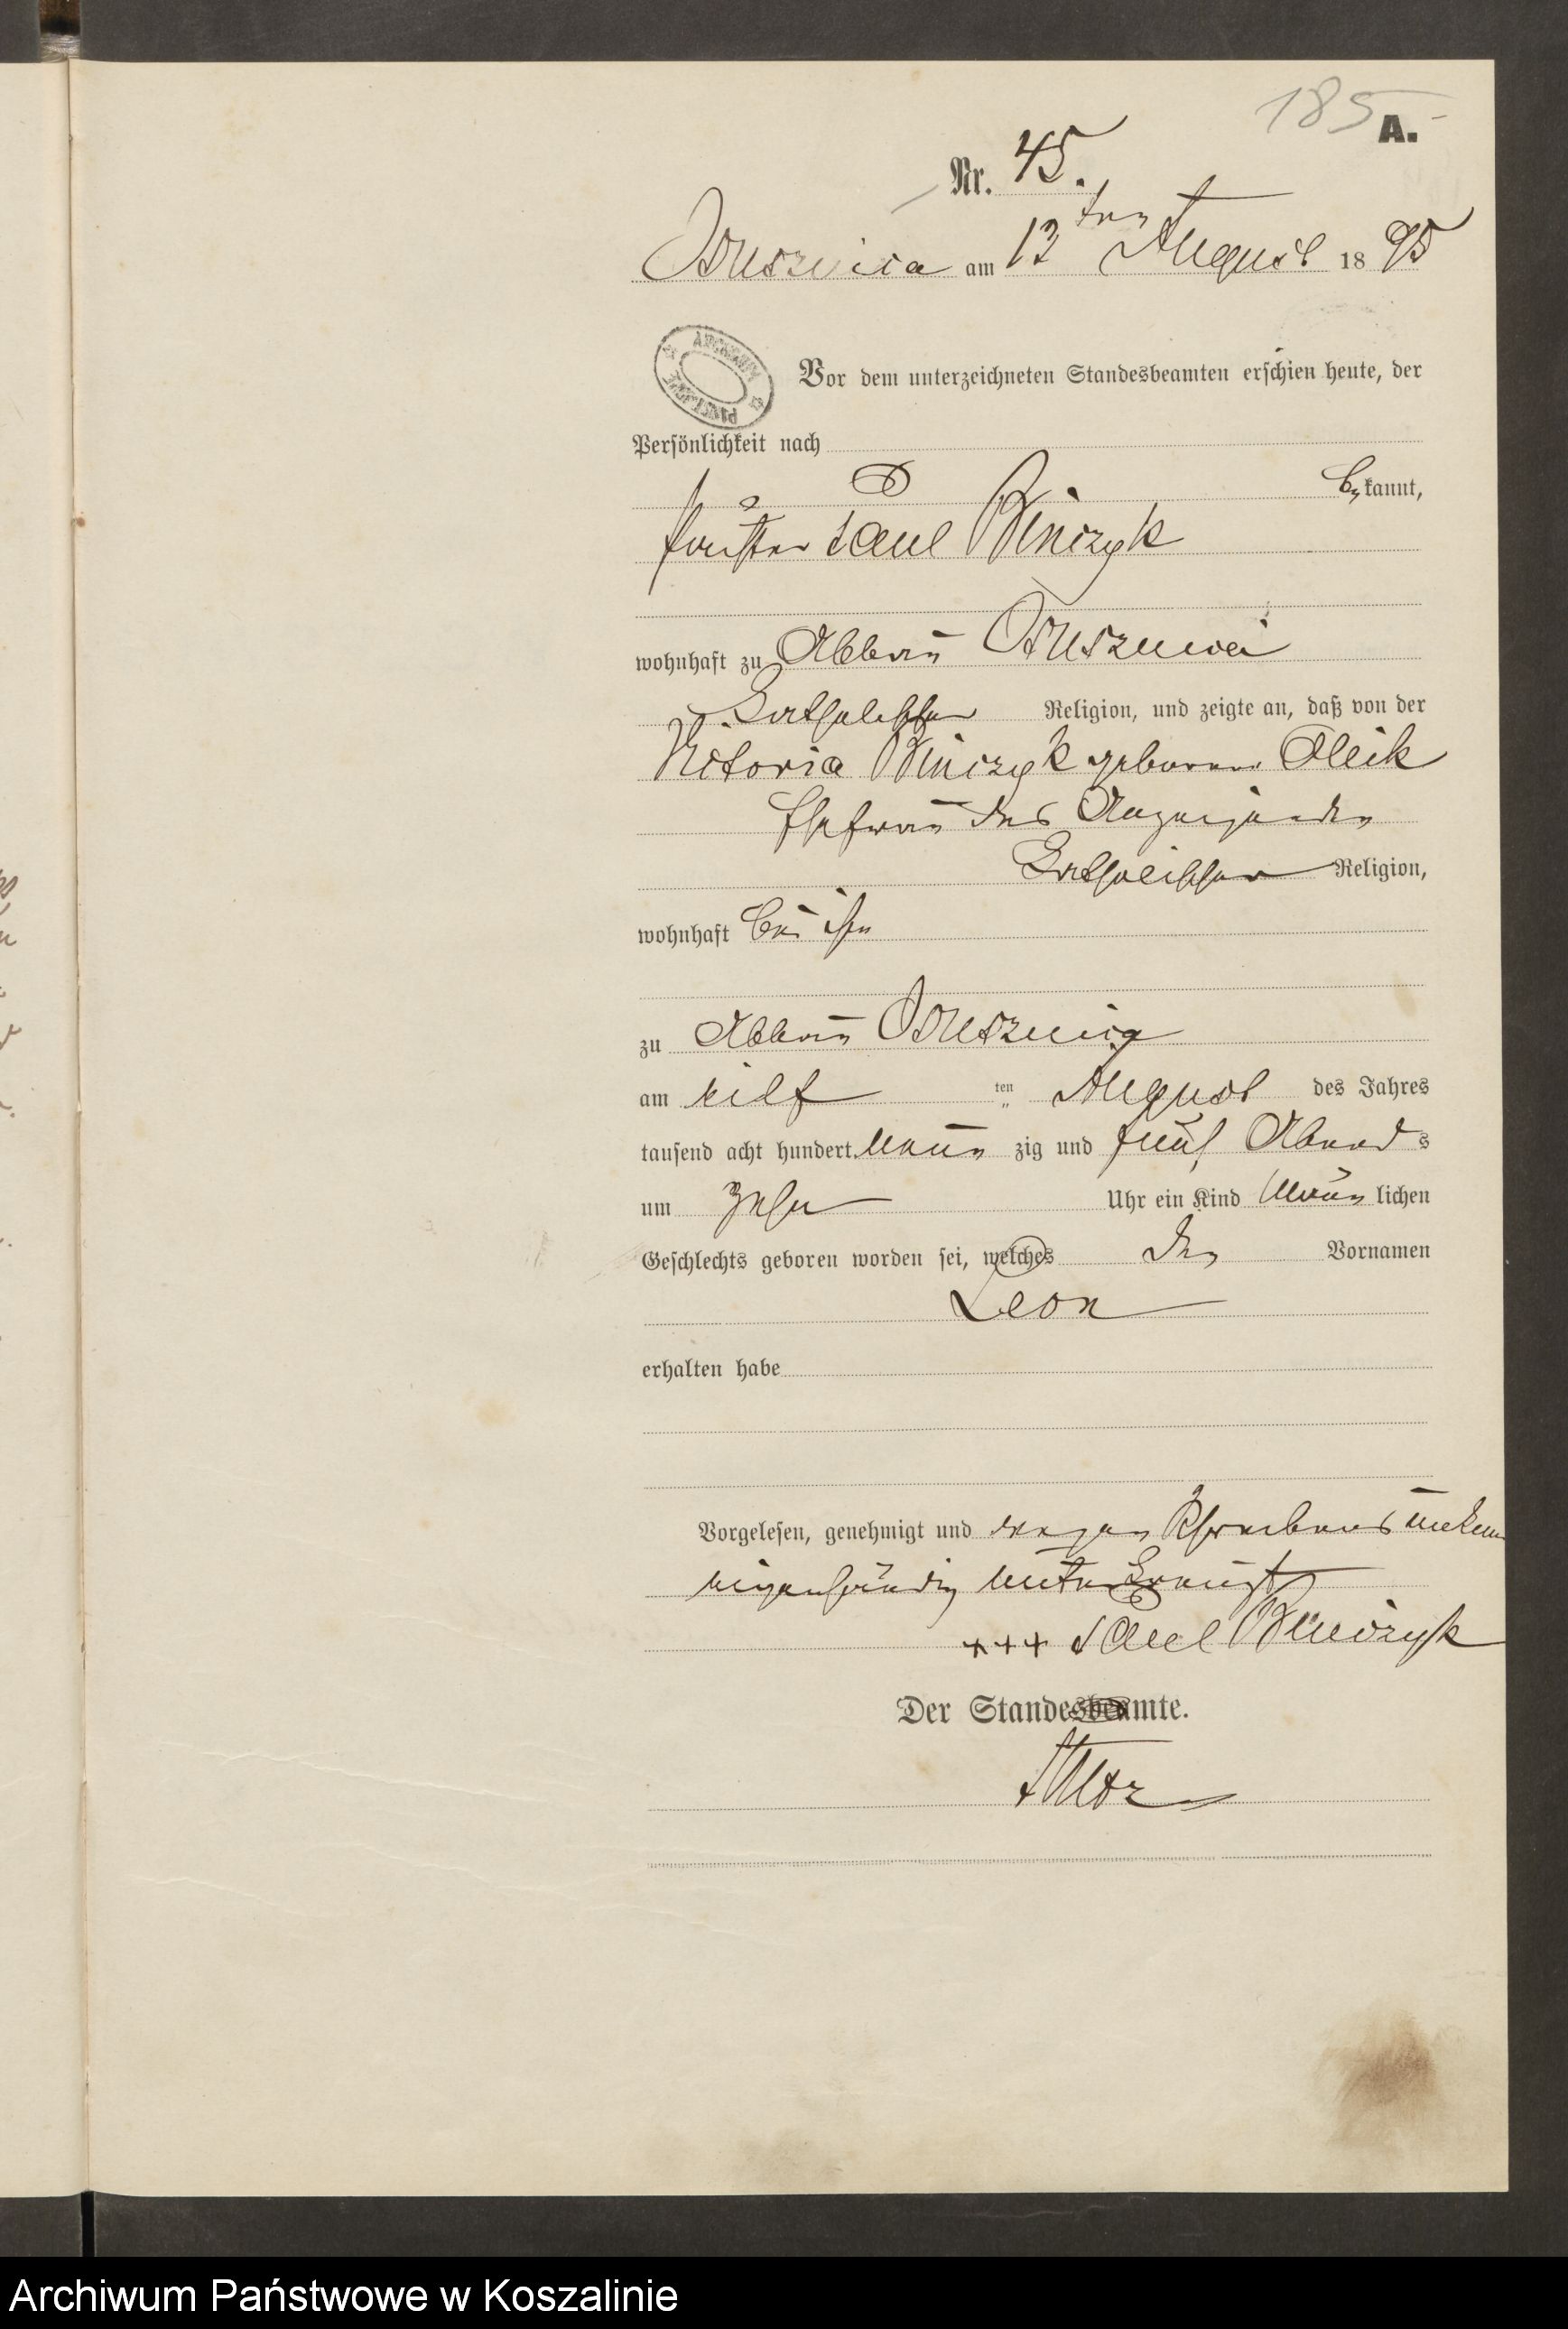 185
A.
Nr. 45.
am 13ten August 1895
ARCHIWUM PAŃSTWOWE
Vor dem unterzeichneten Standesbeamten erschien heute, der
Persönlichkeit nach
bekannt,
Paul Binczyk
wohnhaft zu Abbau
Katholischer Religion, und zeigte an, daß von der
Victoria Binczyk geborene Oleik
Ehefrau des Anzeigenden
Katholischer Religion,
wohnhaft bei ihm
zu Abbau
am eilf ten August des Jahres
tausend acht hundert neun zig und fünf Abends
um zehn Uhr ein Kind männlichen
Geschlechts geboren worden sei, welches den Vornamen
Leon
erhalten habe
Vorgelesen, genehmigt und wegen Schreibens
eigenhändig unterkreuzt
+++ Paul Binczyk
Der Standesbeamte.
Archiwum Państwowe w Koszalinie